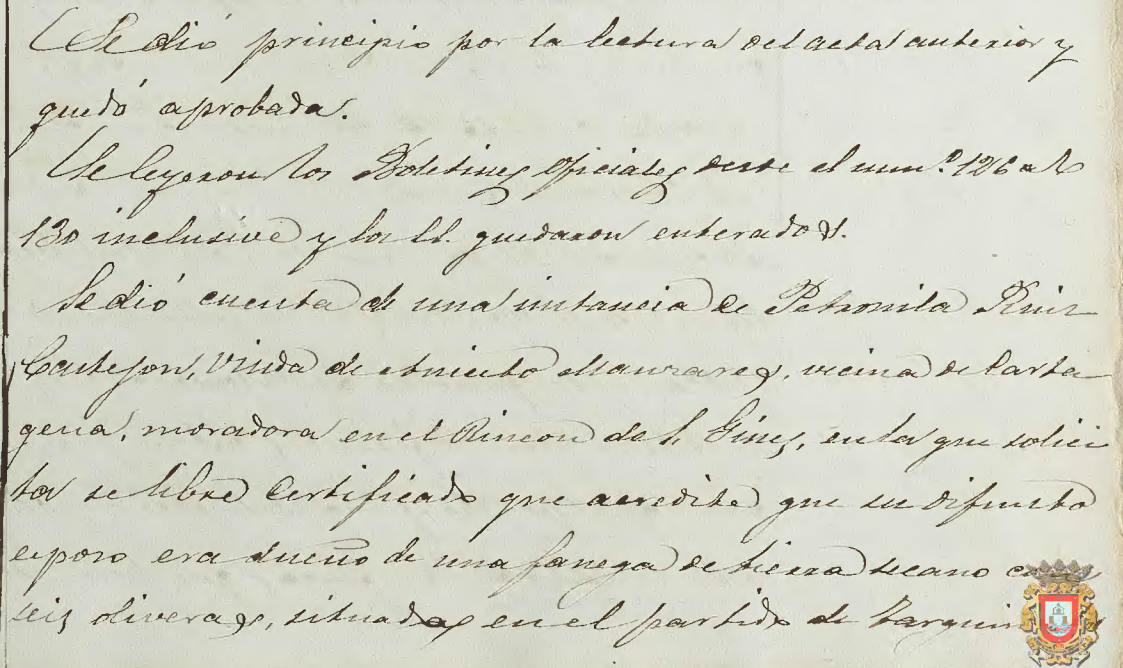 Se dió principio por la lectura del acta anterior y
quedó aprobada.
Se leyeron los Boletines oficiales desde el num.º 126 al
130 inclusive y los SS. quedaron enterados.
Se dió cuenta de una instancia de Petronila Ruiz
Castejon, viuda de Aniceto Manzanares, vecina de Carta
gena, moradora en el Rincon de S. Gines, en la que solici
ta se libre certificado que acredite que su difunto
esposo era dueño de una fanega de tierra secano
seis oliveras, situadas en el partido de